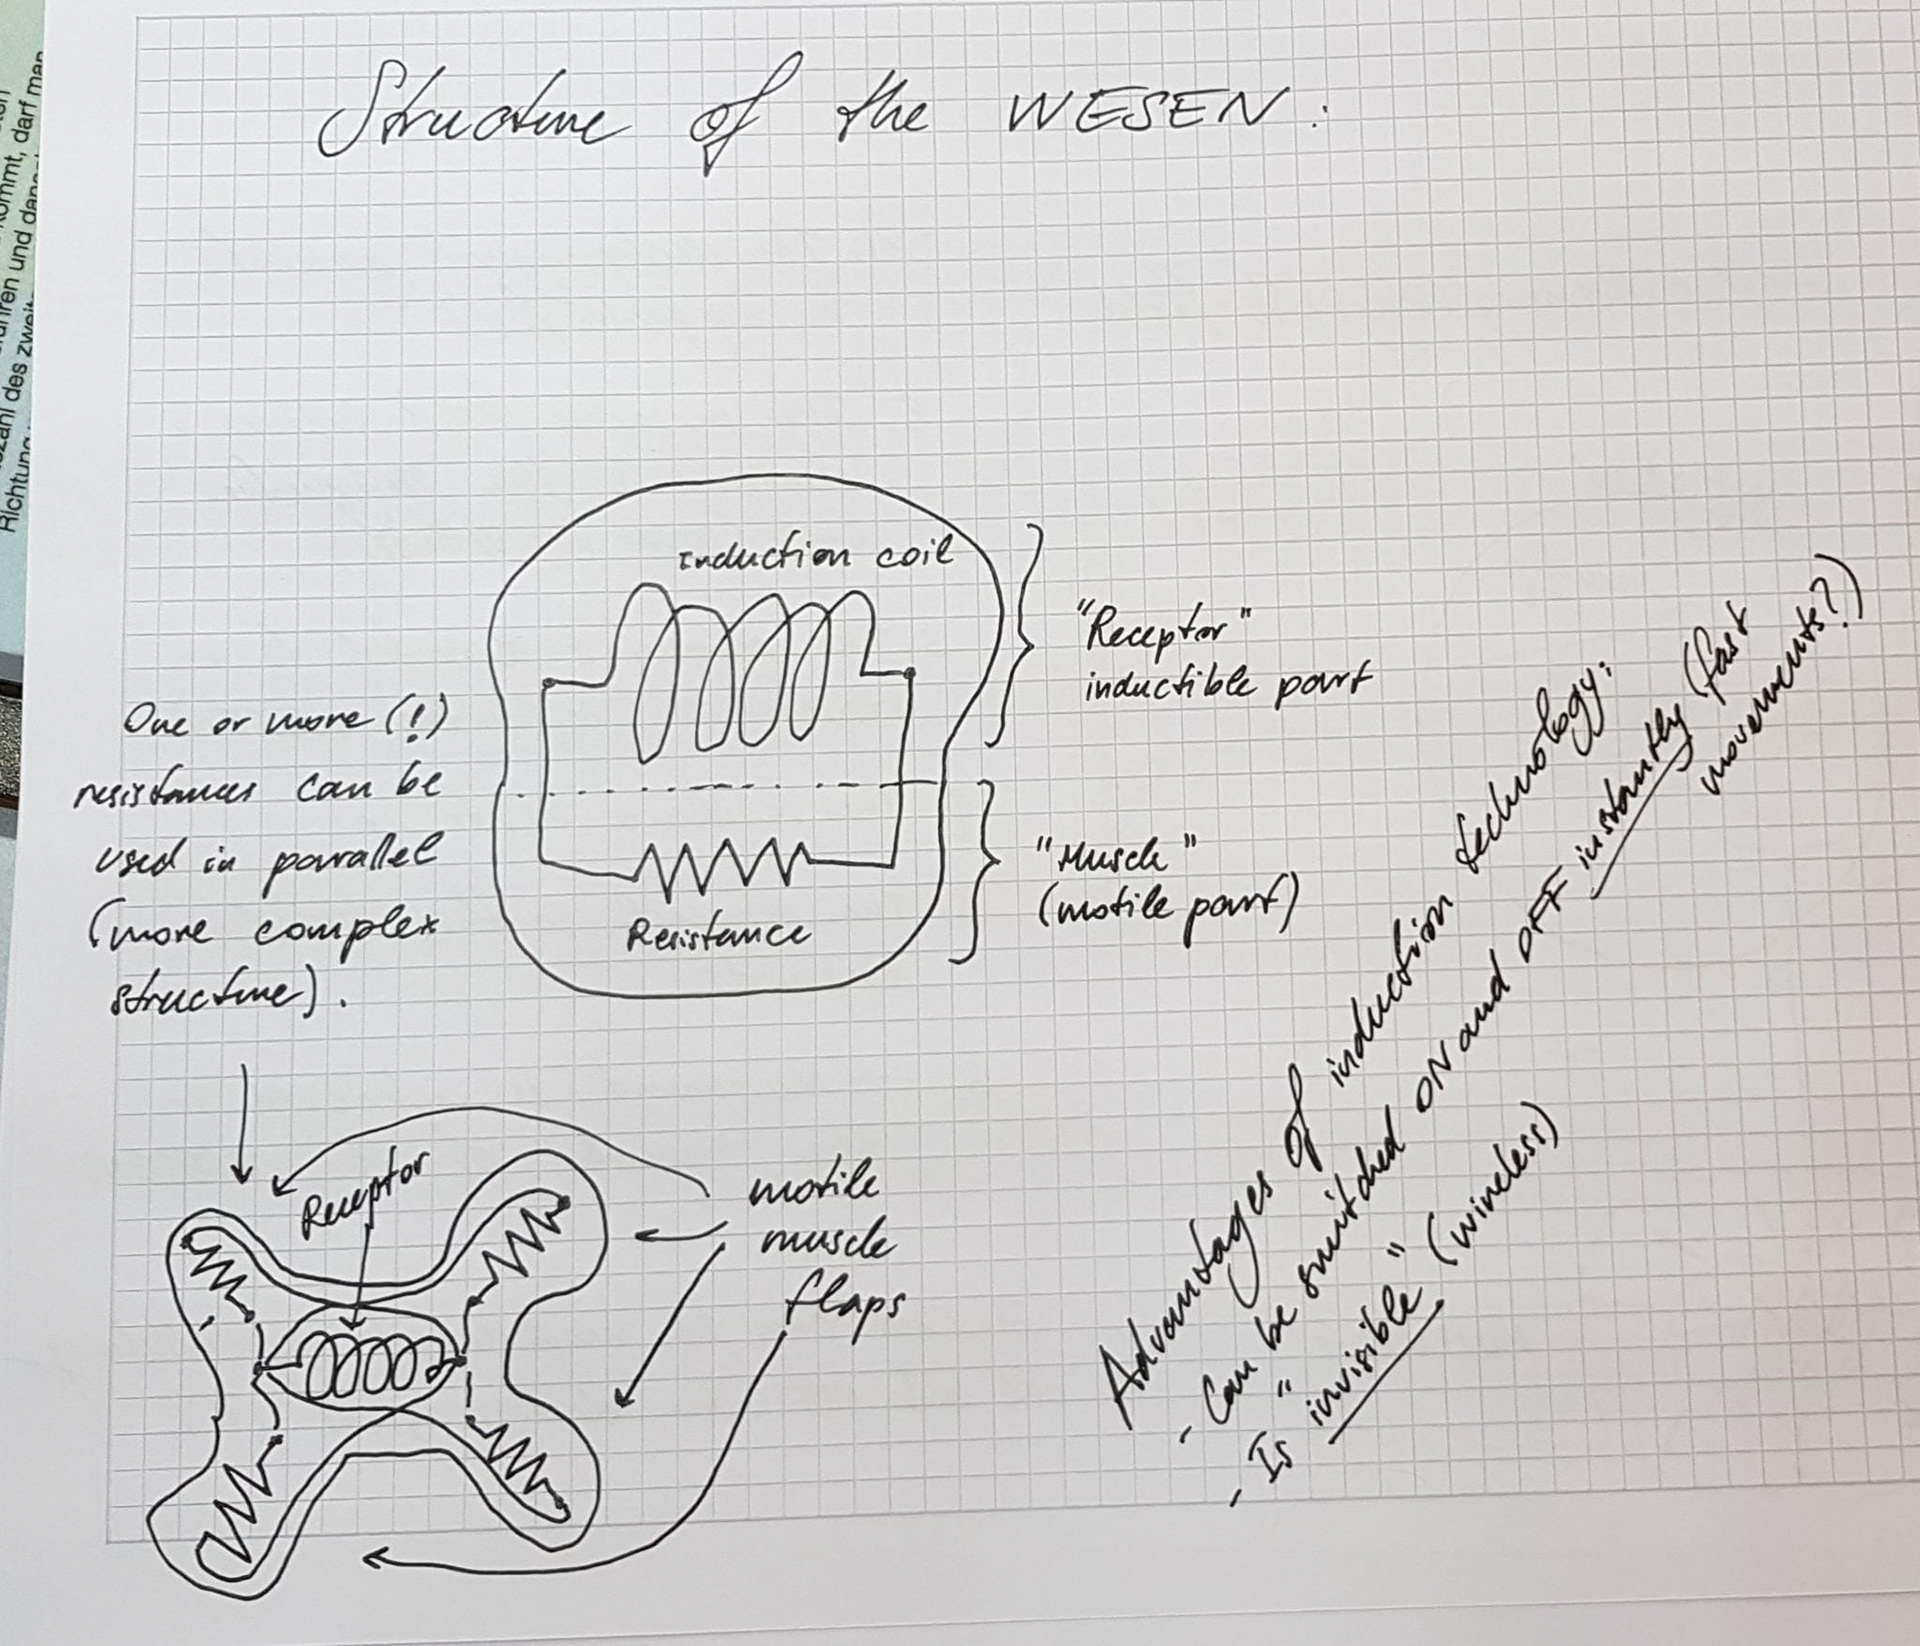 Structure of the WESEN:
Induction coil
"Receptor"
inductible part
One or more (!)
resistances can be
used in parallel
(more complex
structure).
"Muscle"
(motile part)
Resistance
Receptor
motile
muscle
flaps
Advantages of induction technology:
- Can be switched ON and OFF instantly (fast
movements?)
- Is "invisible" (wireless)
kommt, darf man
führen und
des
Richtung